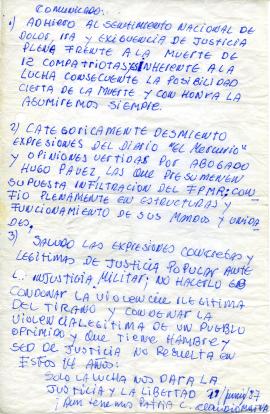 COMUNICADO:
1) ADHIERO AL SENTIMIENTO NACIONAL DE
DOLOR, IRA Y EXIGENCIA DE JUSTICIA
PLENA FRENTE A LA MUERTE DE
12 COMPATRIOTAS, INHERENTE A LA
LUCHA CONSECUENTE LA POSIBILIDAD
CIERTA DE LA MUERTE Y CON HONRA LA
ASUMIREMOS SIEMPRE.
2) CATEGORICAMENTE DESMIENTO
EXPRESIONES DEL DIARIO "EL MERCURIO"
Y OPINIONES VERTIDAS POR ABOGADO
HUGO PAVEZ, LAS QUE PRESUMEN
SUPUESTA INFILTRACION DEL FPMR: CON
FIO PLENAMENTE EN ESTRUCTURAS Y
FUNCIONAMIENTO DE SUS MANDOS Y UNIDA
DES.
3) SALUDO LAS EXPRESIONES CONCRETAS Y
LEGITIMAS DE JUSTICIA POPULAR ANTE
INJUSTICIA MILITAR; NO HACERLO ES
CONDONAR LA VIOLENCIA ILEGITIMA
DEL TIRANO Y CONDENAR LA
VIOLENCIA LEGITIMA DE UN PUEBLO
OPRIMIDO Y QUE TIENE HAMBRE Y
SED DE JUSTICIA NO RESUELTA EN
ESTOS 14 AÑOS:
SOLO LA LUCHA NOS DARA LA
JUSTICIA Y LA LIBERTAD
¡AUN TENEMOS PATRIA C.